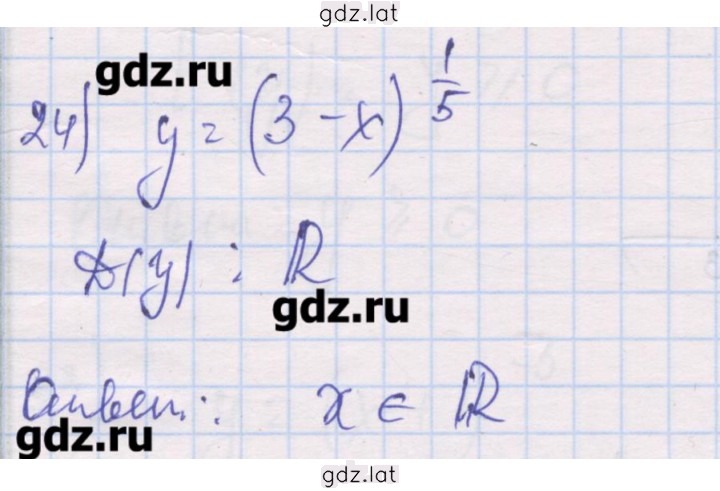 gdz.lat
gdz.ru
24) y = (3 - x)^1/5
D(y) : ℝ
gdz.ru
Ответ: x ∈ ℝ
gdz.ru
gdz.lat